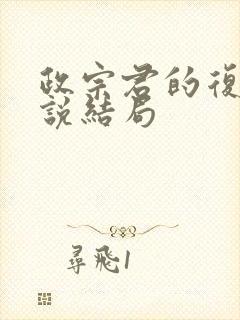 政宗君的復
說結局
尋飛1